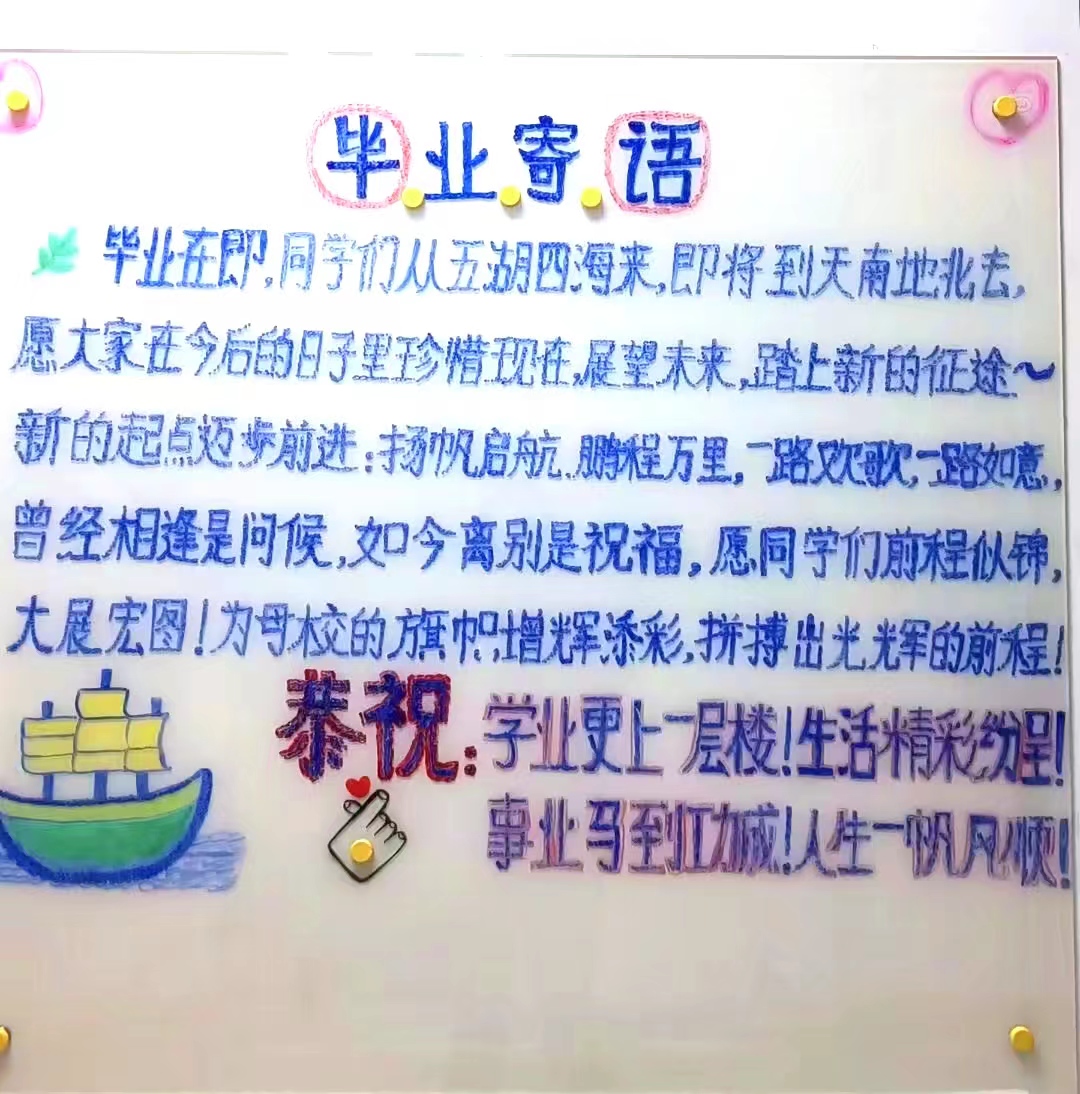 毕业寄语
毕业在即,同学们从五湖四海来,即将到天南地北去,
愿大家在今后的日子里珍惜现在,展望未来,踏上新的征途~
新的起点迈步前进:扬帆启航,鹏程万里,一路欢歌,一路如意,
曾经相逢是问候,如今离别是祝福,愿同学们前程似锦,
大展宏图!为母校的旗帜增辉添彩,拼搏出光辉的前程!
恭祝:学业更上一层楼!生活精彩纷呈!
事业马到功成!人生一帆风顺!